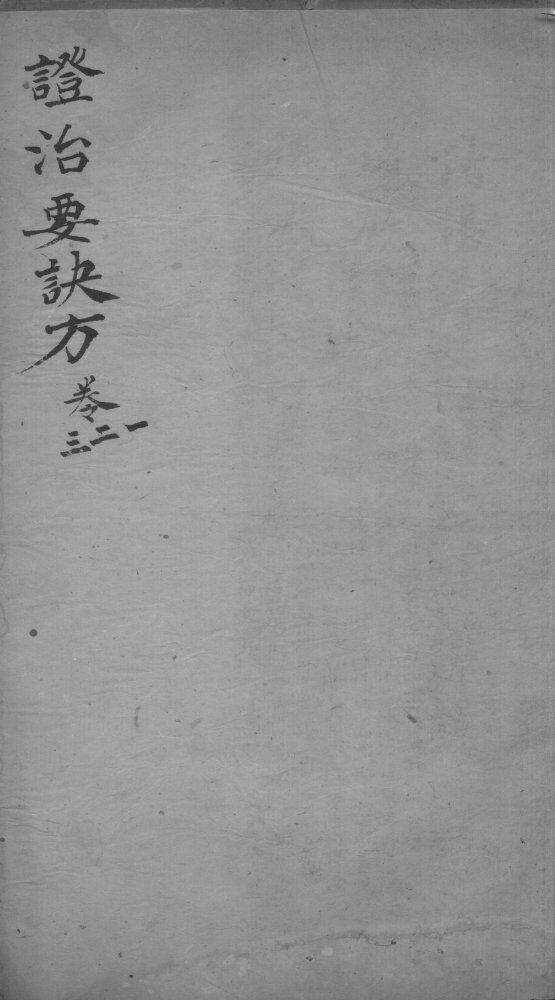 證治要訣方
卷一二三